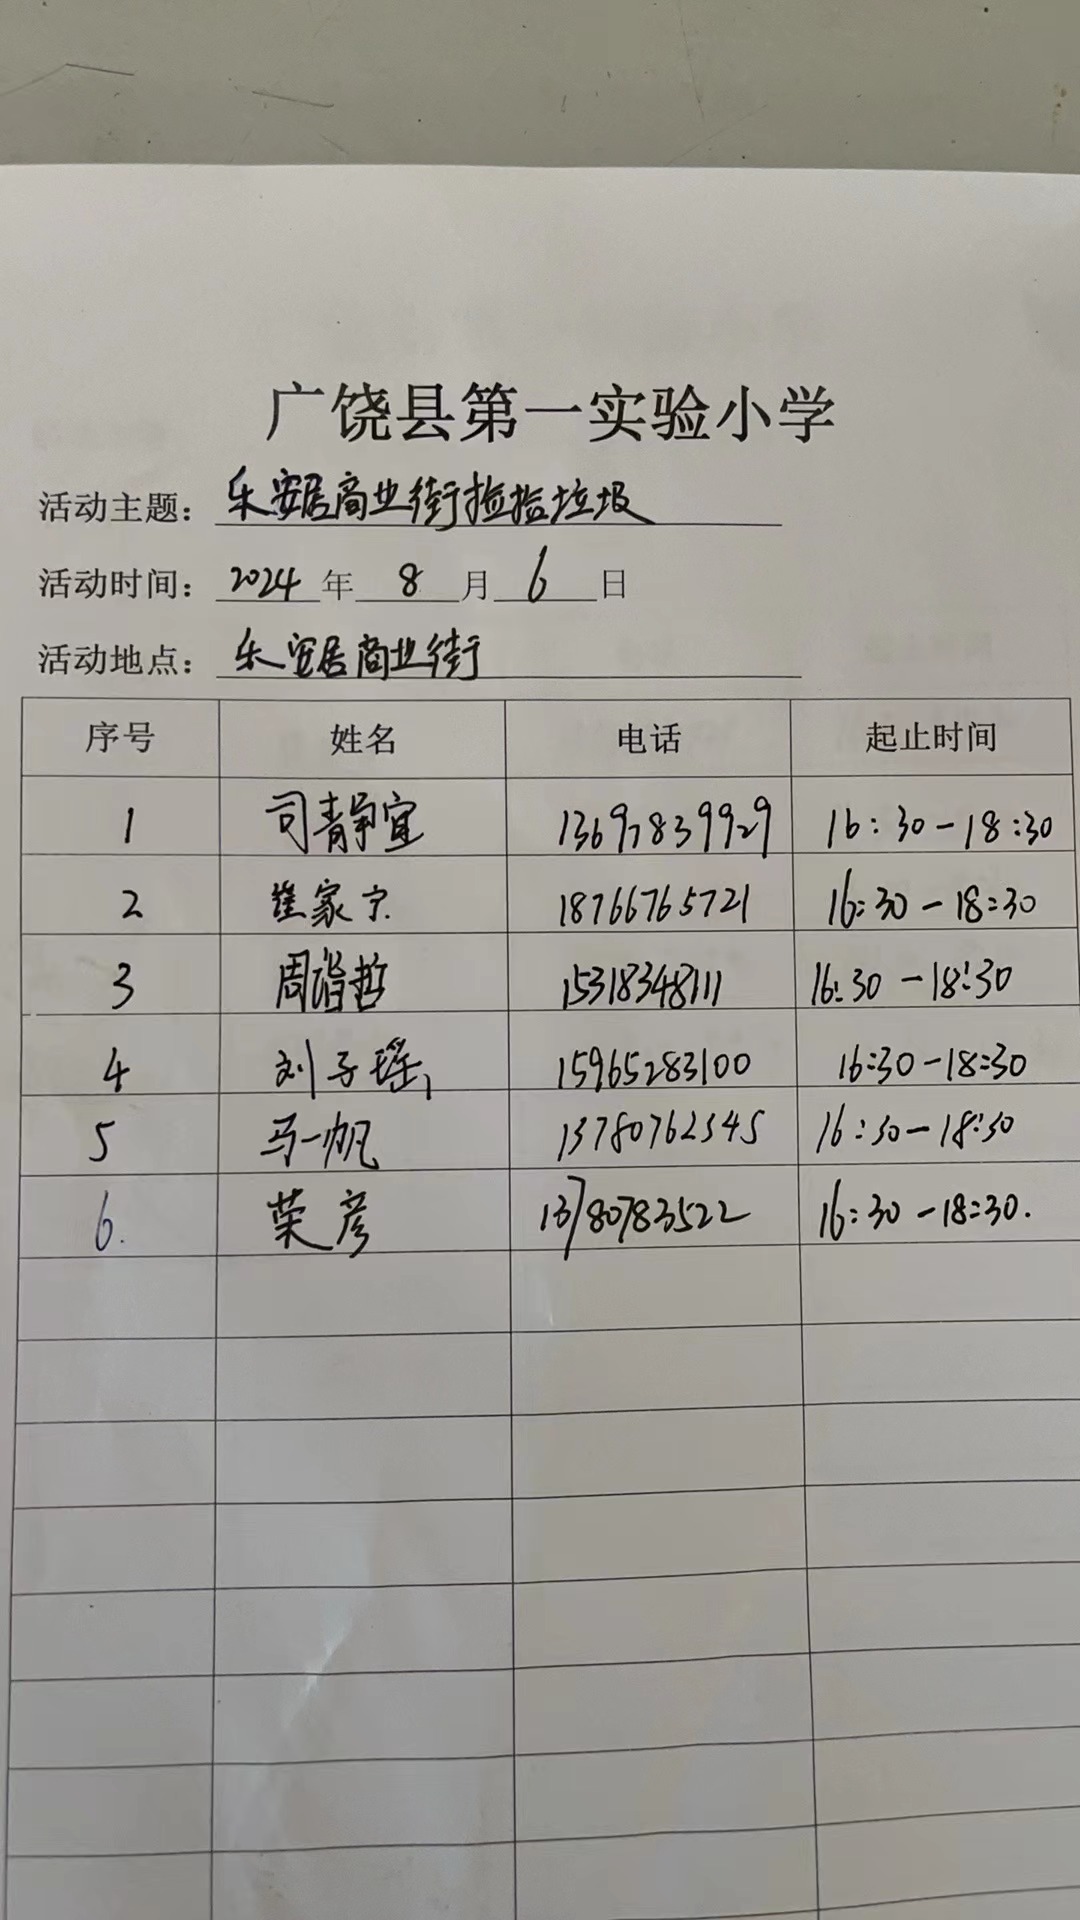 广饶县第一实验小学
活动主题：乐安居商业街捡捡垃圾
活动时间：2024年8月6日
活动地点：乐安居商业街
序号 姓名 电话 起止时间
1 司静宜 13697839929 16:30-18:30
2 崔家宁 18766765721 16:30-18:30
3 周谐哲 15318348111 16:30-18:30
4 刘子瑶 15965283100 16:30-18:30
5 马一帆 13780762345 16:30-18:30
6. 荣彦 13780783522 16:30-18:30.